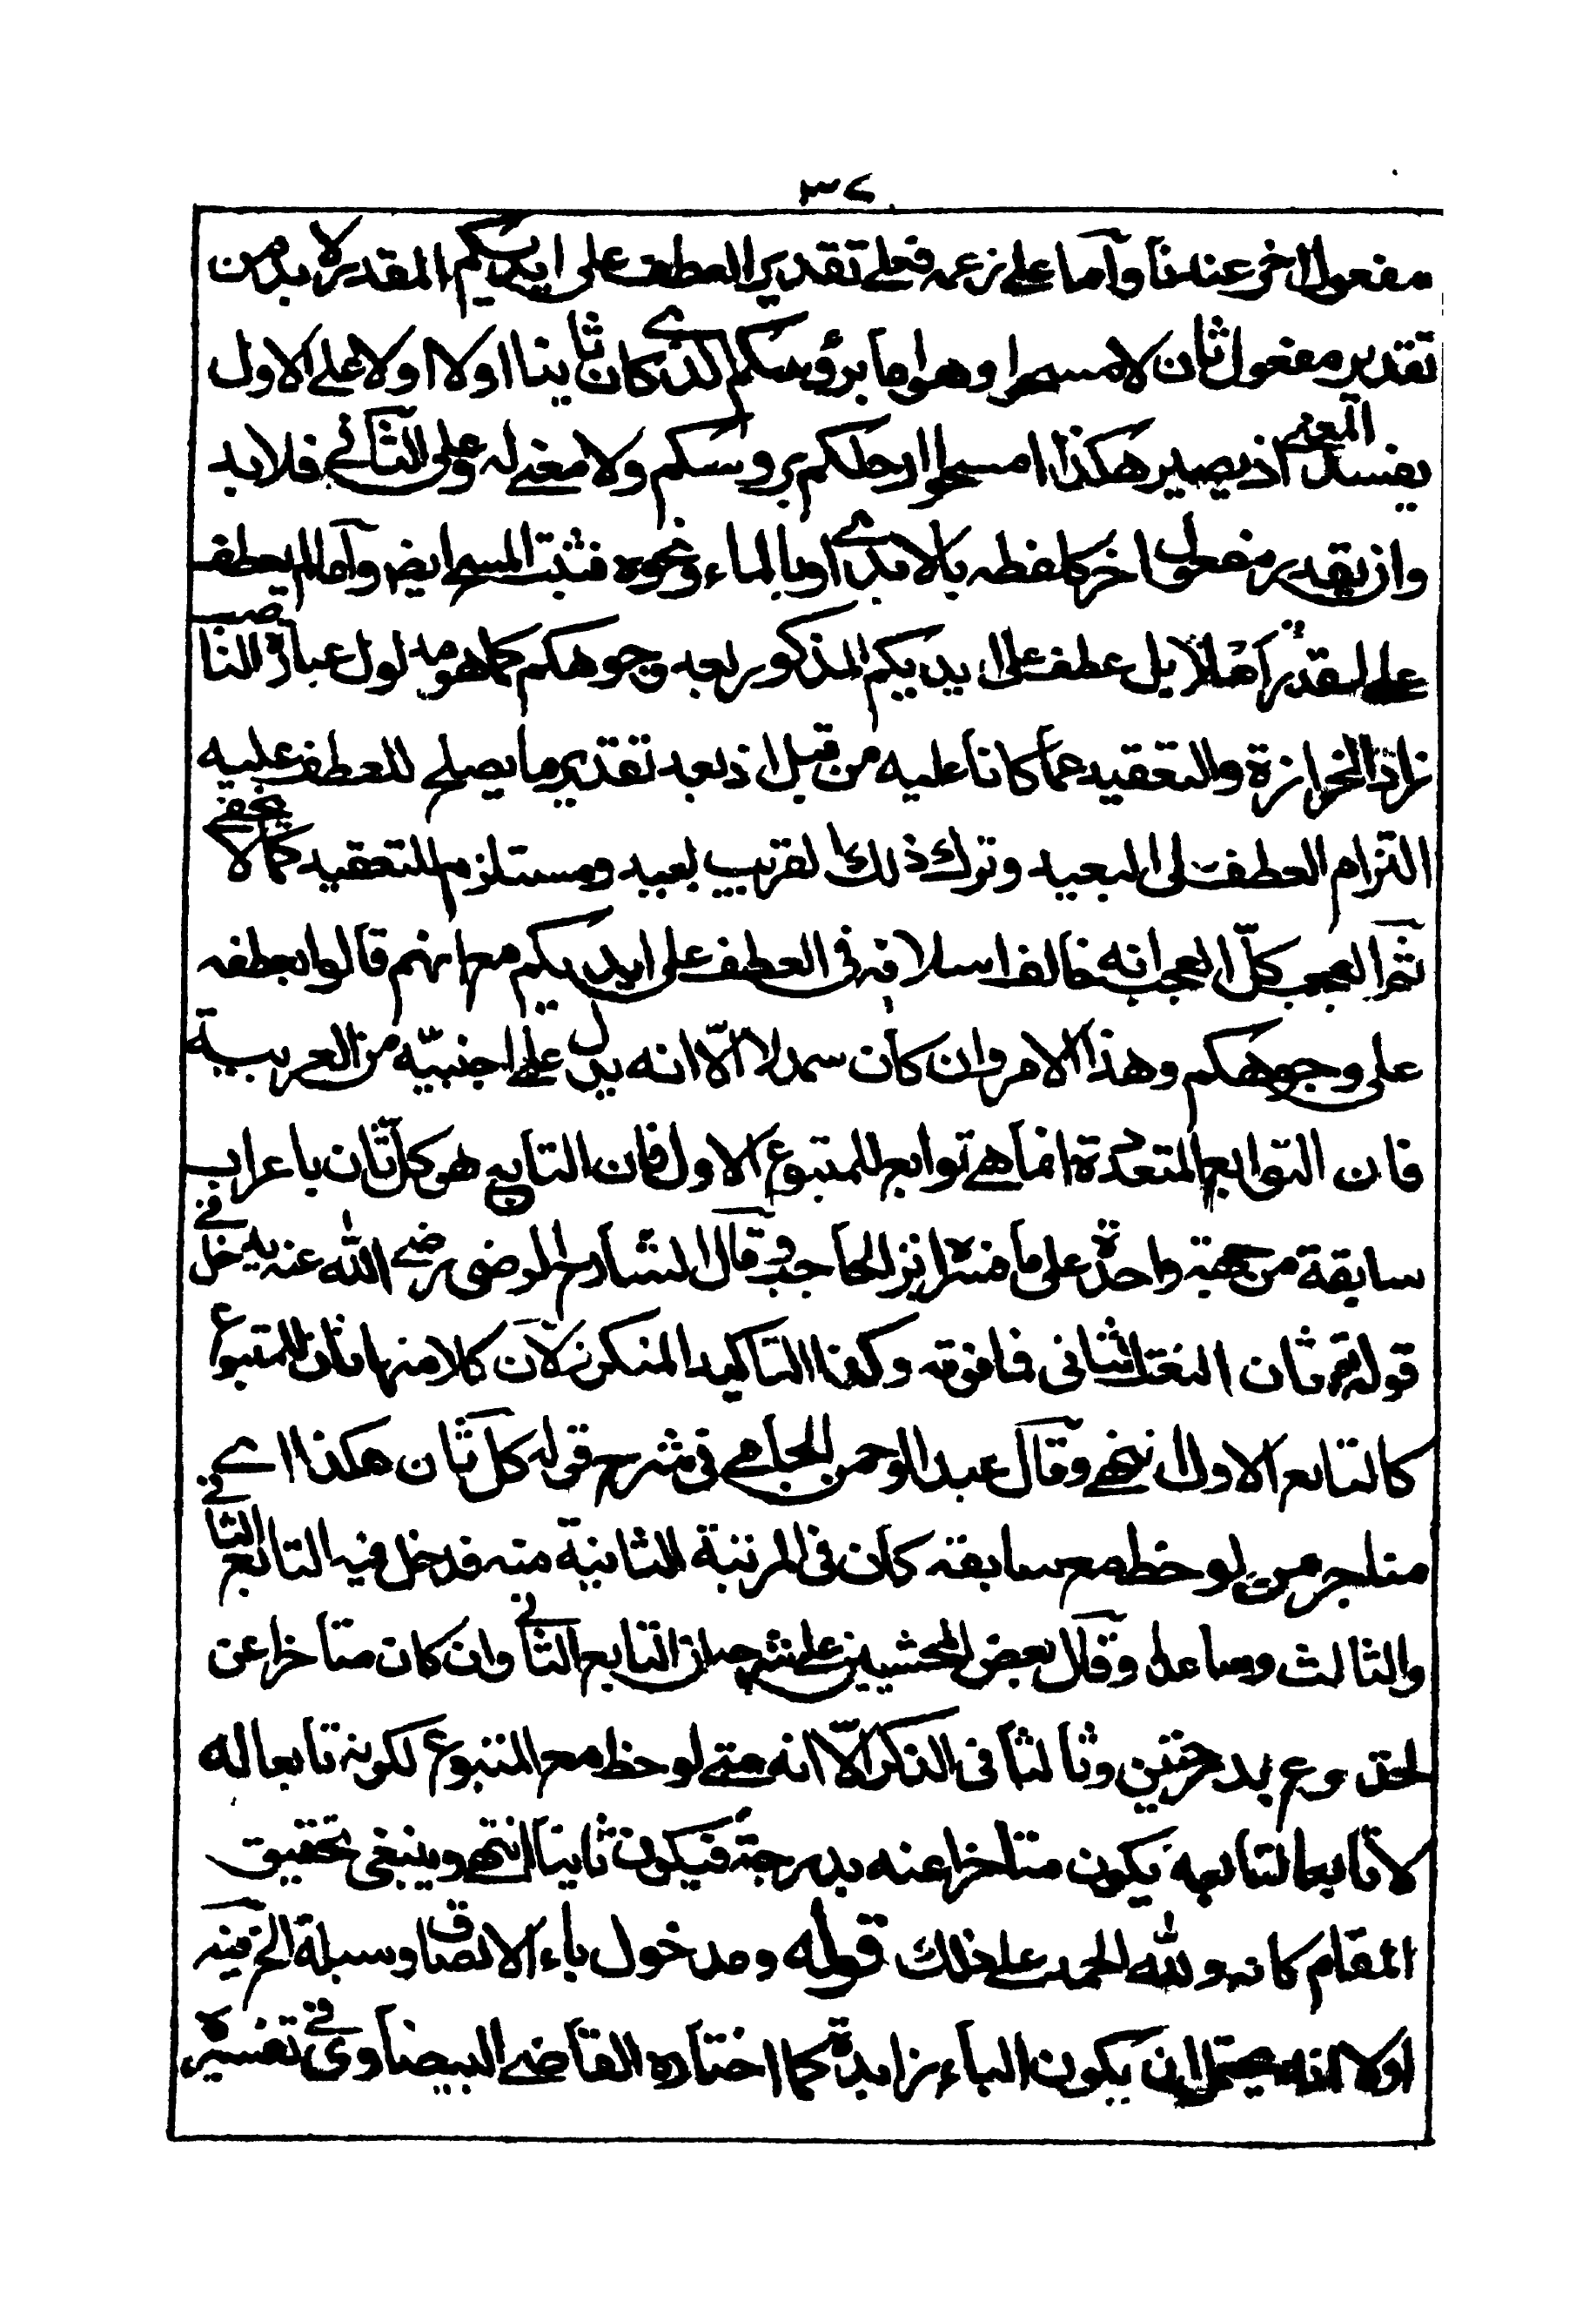 ٣٢
مفعول اخر عندنا وآما على زعمه فعلے تقدير العطف على ايديكم المقدر لا بد من
تقدير مفعول ثان لامسحوا وهو اما برؤسكم الذے كان ثانيا اولا اولا على الاول
يفسد المعنے اذ يصير هكذا امسحوا ارجلكم بروسكم ولا معنے له وعلى الثانے فلا بد
وان يقدر مفعول اخر كلفظه بالايدے او بالماء ونحوه فثبت المسح ايضا وآما لم يعطف
على المقدر اصلا بل عطف على ايديكم المذكور بعد وجوهكم كما هو مدلول عبارة الناصب
زاد الخزازة والتعقيد عما كانا عليه من قبل اذ بعد تقدير ما يصلح للعطف عليه
التزام العطف على البعيد وترك ذلك القريب بعيد ومستلزم للتعقيد كما لا يخفے
ثم العجب كلّ العجب انه خالف اسلافه فى العطف على ايديكم مع انهم قالوا بعطفه
على وجوهكم وهذا الامر وان كان سهلا الّا انه يدل على اجنبيّه من العربية
فان التوابع المتعددة انما هے توابع للمتبوع الاول فان التابع هو كل ثان باعراب
سابقة من جهة واحدة على ما فسره ابن الحاجب وقال الشارح الرضى رضے الله عنه يدخل فے
قوله ثان النعت الثانى فما فوقه وكذا التاكيد المتكرر لان كلا منها ثان للمتبوع
كالتابع الاول انتهے وقال عبد الرحمن الجامے فى شرح قوله كل ثان هكذا اے
متاخر متے لوحظ مع سابقه كان فى المرتبة الثانية منه فدخل فيه التابع الثانے
والثالث وصاعدا وقال بعض المحشيين على شرحه ان التابع الثانے وان كان متاخرا عن
المتبوع بدرجتين وثالثا فى الذكر الّا انه متے لوحظ مع المتبوع لكونه تابعا له
لا تابعا لتابعه يكون متاخرا عنه بدرجة فيكون ثانيا انتهے وينبغى تحقيق
المقام كانه ولله الحمد على ذلك قوله ومدخول باء الالصاق وسيلة الخ فيه
اولا انه يحتمل ان يكون الباء زايدة كما اختاره القاضے البيضاوى فے تفسيره